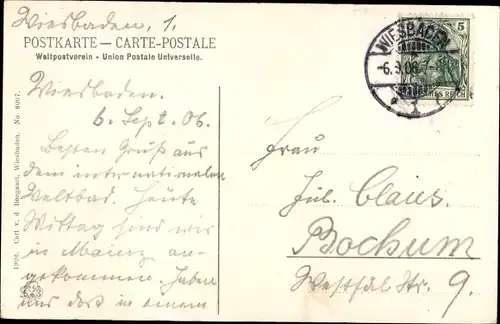 Wiesbaden, 1.
POSTKARTE — CARTE-POSTALE
Weltpostverein - Union Postale Universelle.
Wiesbaden.
6. Sept. 06.
Besten Gruß aus
dem internationalen
Weltbad. Heute
Mittag sind wir
in Mainz an-
gekommen haben
uns dort in einem
1904. Carl v. d. Boogaart, Wiesbaden. No 8067.
WIESBADEN
-6.9.06.7-8
* 1 t
5
REICH
Frau
Jul. Claus.
Bochum
Westfäl Str. 9.